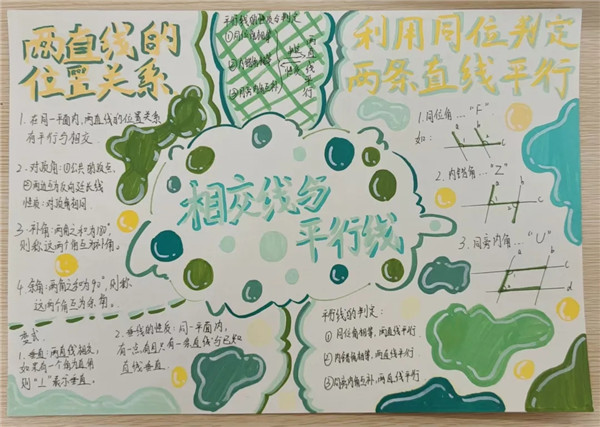 两直线的
位置关系
1. 在同一平面内,两直线的位置关系
有平行与相交
2. 对顶角:①公共的顶点,
②两边互为反向延长线
性质:对顶角相同
3. 补角:两角之和为180°,
则称这两个角互为补角。
4. 余角:两角之和为90°,则称
这两个角互为余角。
1. 垂直:两直线相交,
如果有一个角为直角
则"⊥"表示垂直。
2. 垂线的性质:同一平面内,
有一点,有且只有一条直线与已知
直线垂直.
平行线的性质与判定
①同位角相等
②内错角相等
③同旁内角互补
判定
性质
两直线平行
相交线与
平行线
利用同位判定
两条直线平行
1. 同位角…"F"
如:
2. 内错角…"Z"
3. 同旁内角…"U"
平行线的判定:
① 同位角相等,两直线平行.
② 内错角相等,两直线平行
③ 同旁内角互补,两直线平行